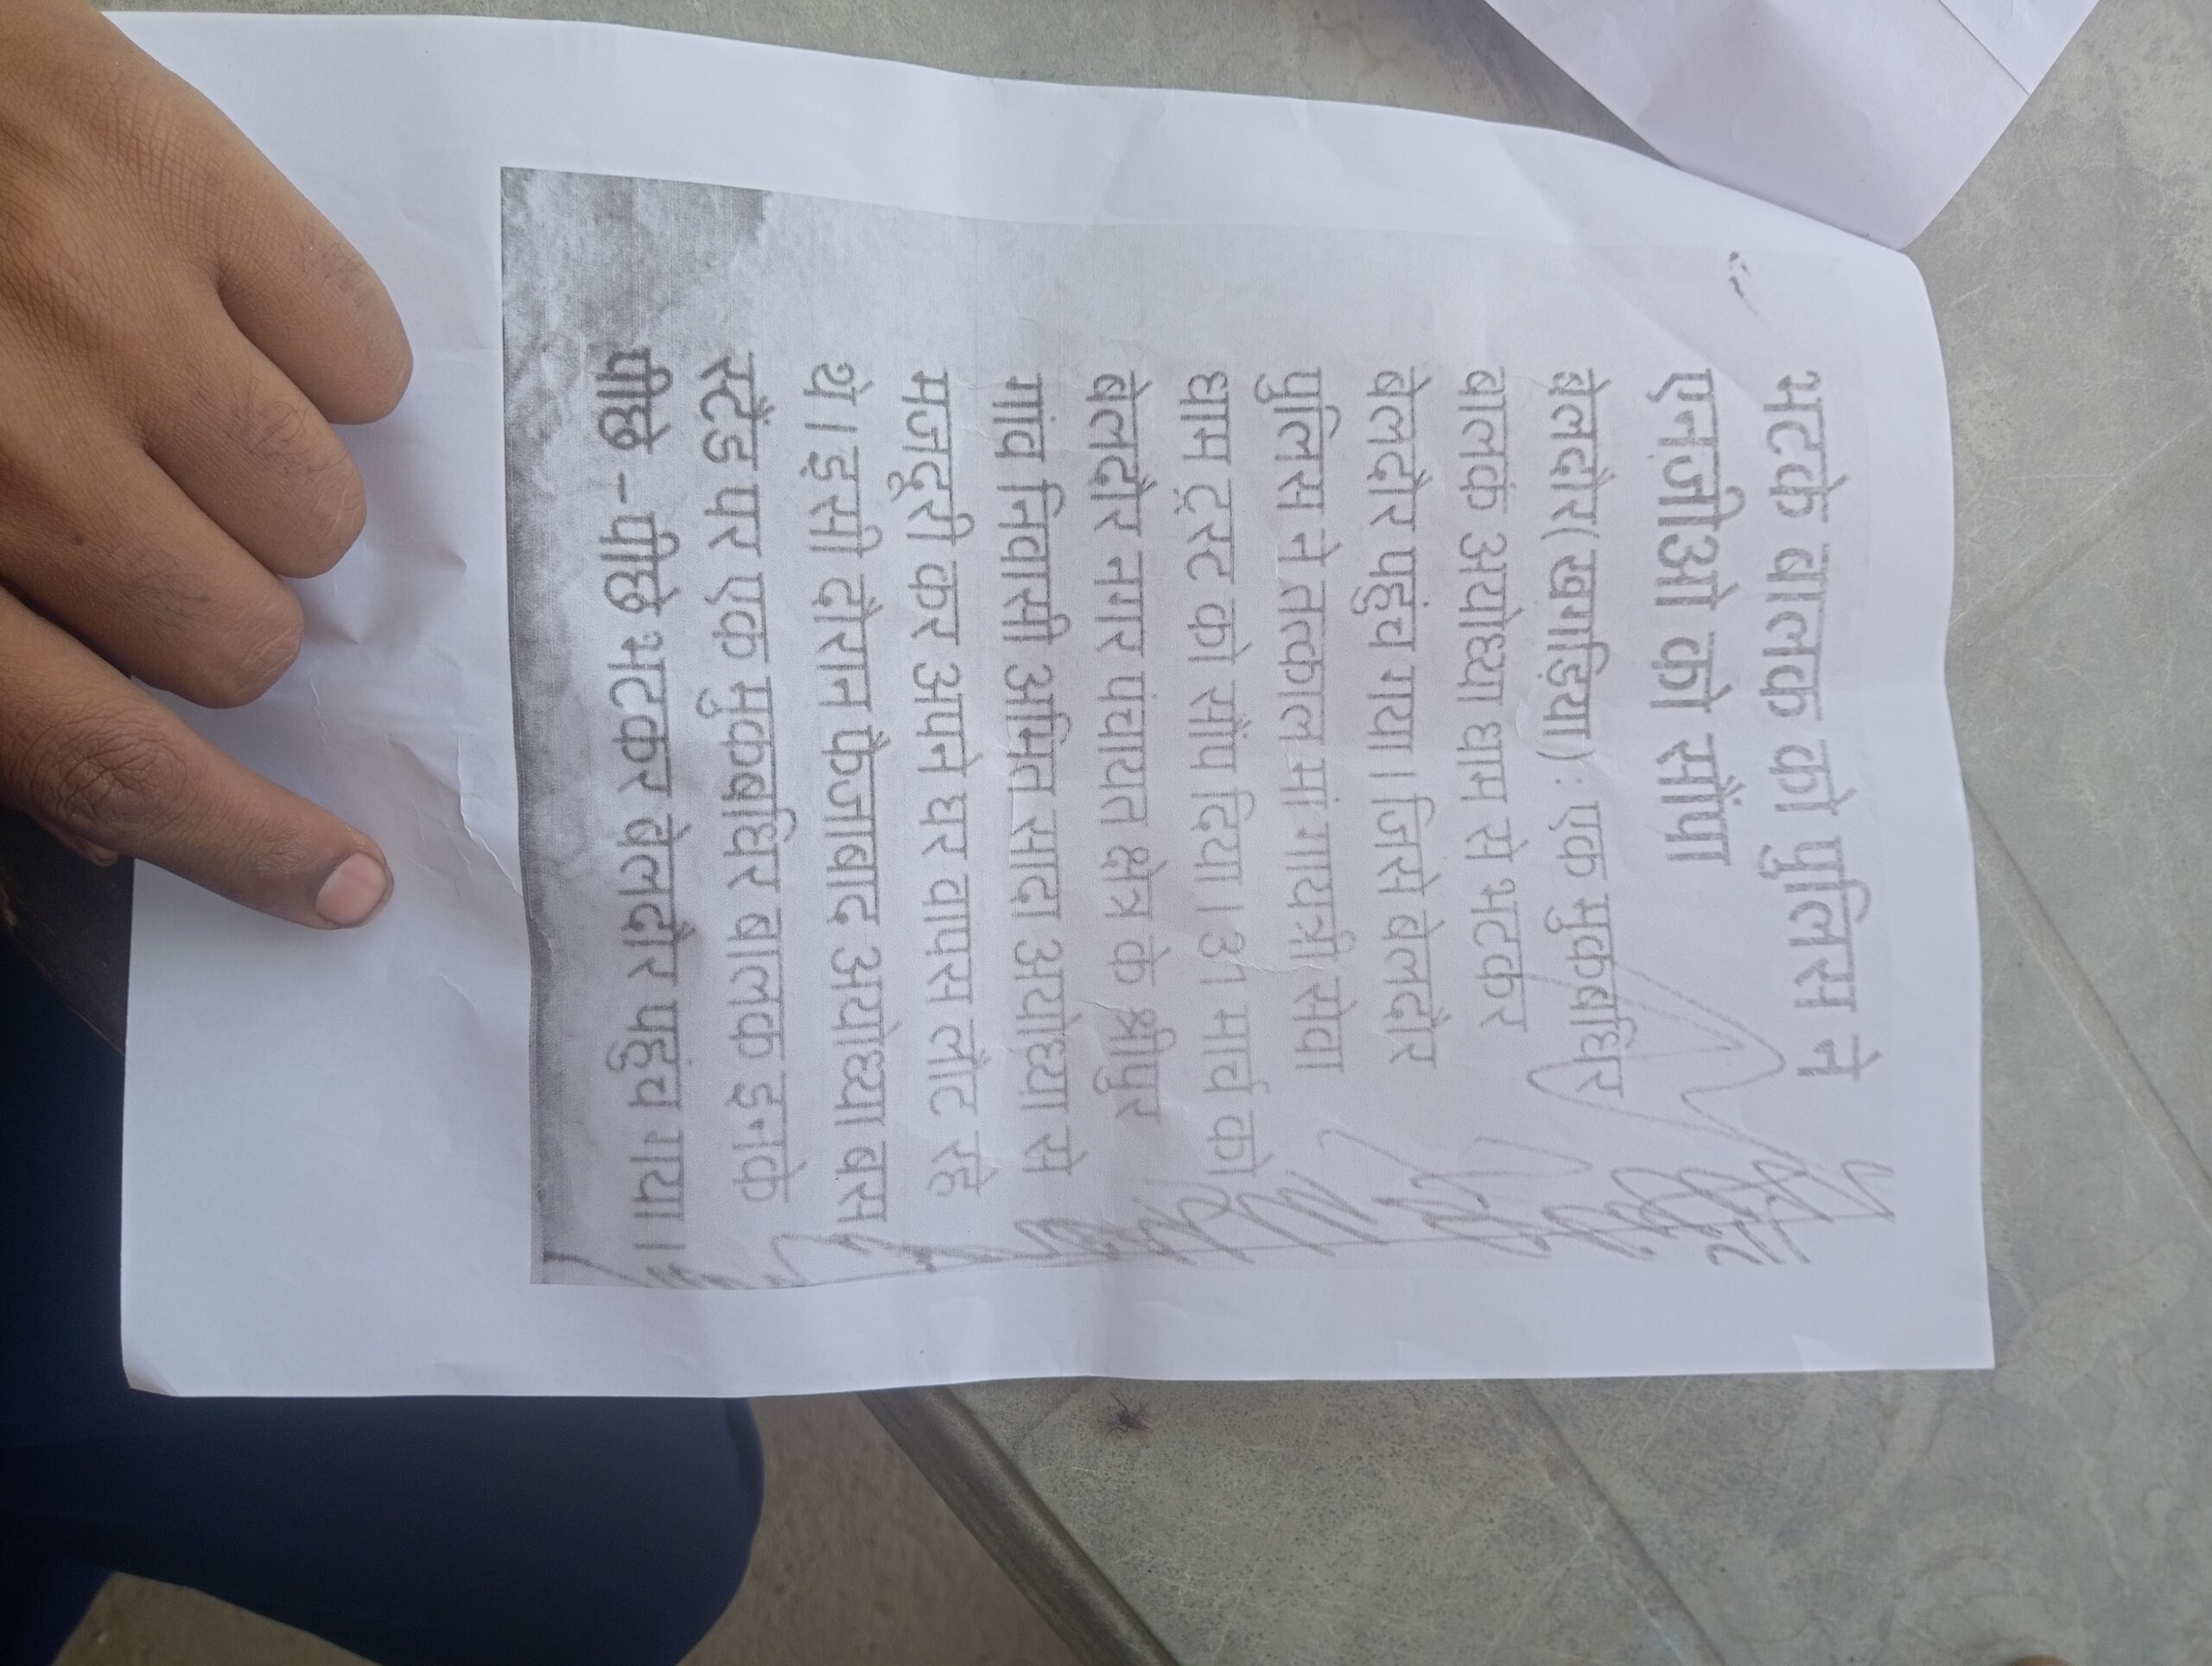 भटके बालक को पुलिस ने
एनजीओ को सौंपा
बेलदौर(खगड़िया): एक मुकबधिर
बालक अयोध्या धाम से भटकर
बेलदौर पहुंच गया। जिसे बेलदौर
पुलिस ने तत्काल मां गायत्री सेवा
धाम ट्रस्ट को सौंप दिया। 31 मार्च को
बेलदौर नगर पंचायत क्षेत्र के श्रीपुर
गांव निवासी अमित सादा अयोध्या से
मजदूरी कर अपने घर वापस लौट रहे
थे। इसी दौरान फैजाबाद अयोध्या बस
स्टैंड पर एक मुकबधिर बालक इनके
पीछे -पीछे भटकर बेलदौर पहुंच गया।